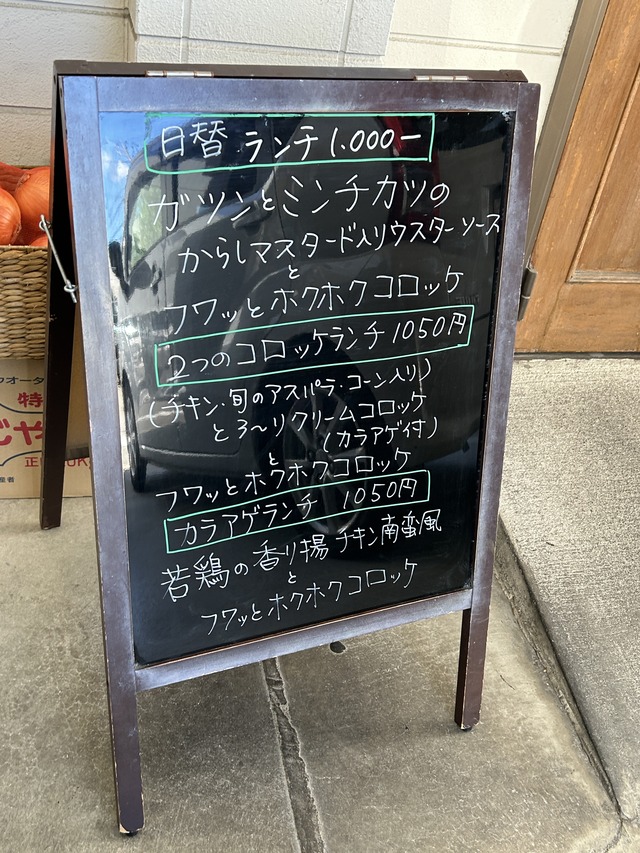 日替 ランチ 1.000ー
ガツンとミンチカツの
からしマスタード入りウスターソース
と
フワッとホクホクコロッケ
2つのコロッケランチ 1050円
(チキン・旬のアスパラ・コーン入り)
とろ〜りクリームコロッケ
(カラアゲ付)
と
フワッとホクホクコロッケ
カラアゲランチ 1050円
若鶏の香り揚 チキン南蛮風
と
フワッとホクホクコロッケ
特
じゃ